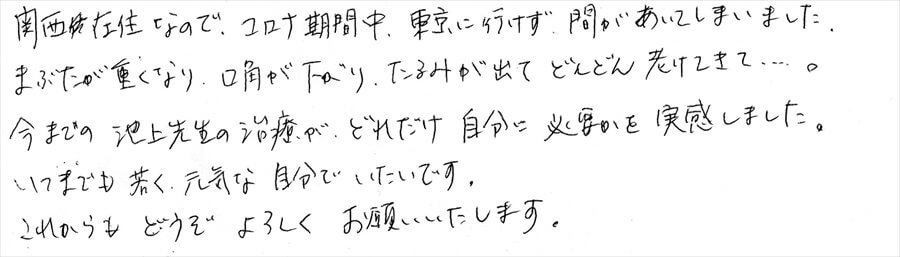 関西在住なので、コロナ期間中、東京に行けず、間があいてしまいました。
まぶたが重くなり、口角が下がり、たるみが出てどんどん老けてきて…。
今までの池上先生の治療が、どれだけ自分に必要かを実感しました。
いつまでも若く、元気な自分でいたいです。
これからもどうぞよろしくお願いいたします。